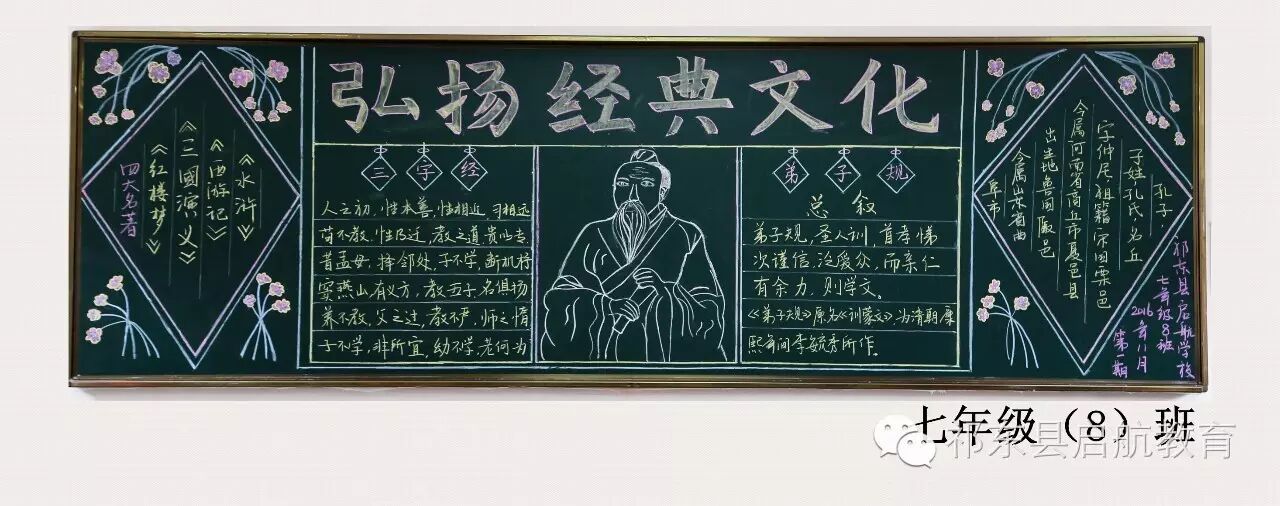 弘扬经典文化
四大名著
《红楼梦》
《三國演义》
《西游记》
《水浒》
三字经
人之初，性本善，性相近 习相远
苟不教，性乃迁，教之道 贵以专
昔孟母，择邻处，子不学，断机杼
窦燕山，有义方，教五子 名俱扬
养不教，父之过，教不严，师之惰
子不学，非所宜，幼不学，老何为
弟子规
总叙
弟子规，圣人训，首孝悌
次谨信，泛爱众，而亲仁
有余力，则学文。
《弟子规》原名《训蒙文》，为清朝康
熙年间李毓秀所作。
孔子，
子姓孔氏，名丘
字仲尼，祖籍宋国栗邑
今属河南省商丘市夏邑县
出生地鲁国陬邑
今属山东省曲
阜市
祁东县启航学校
七年级8班
2016年11月
第一期
七年级（8）班
祁东县启航教育